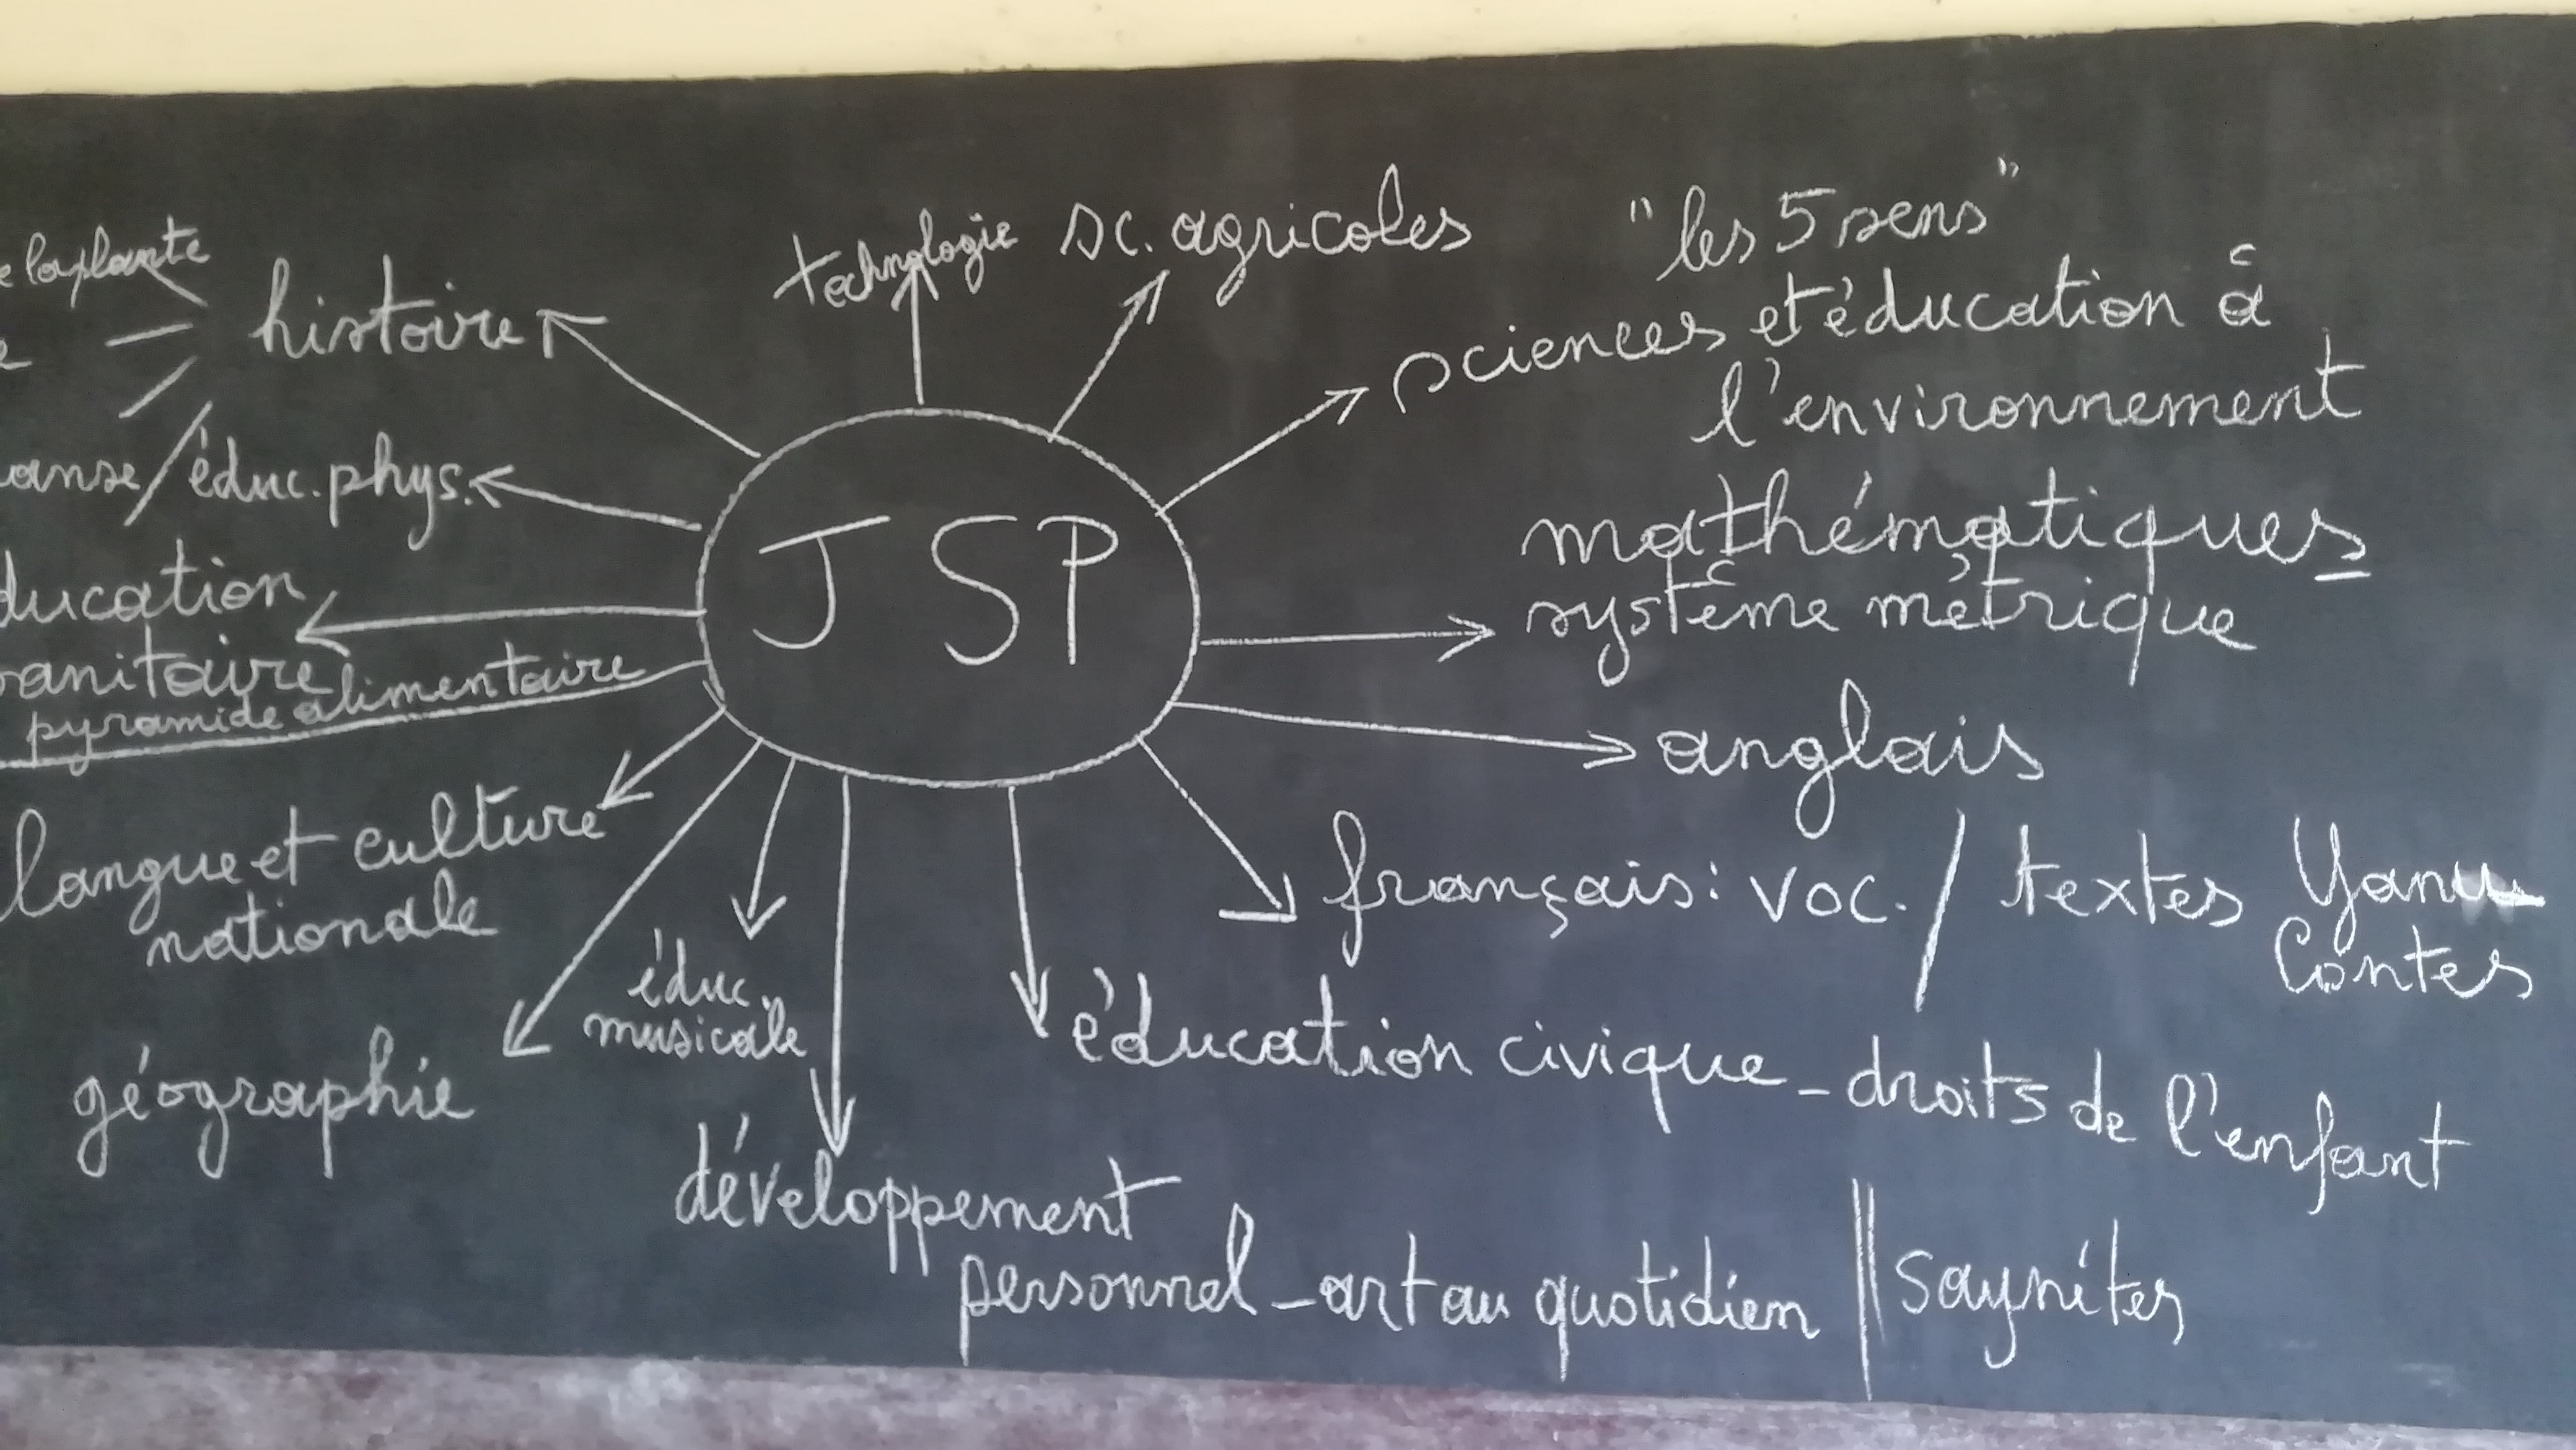 technologie
sc. agricoles
"les 5 sens"
sciences et éducation à
l'environnement
mathématiques
système métrique
anglais
français: voc. / textes
Contes
éducation civique - droits de l'enfant
développement
personnel - art au quotidien || Saynètes
éduc.
musicale
géographie
langue et culture
nationale
pyramide alimentaire
/ éduc. phys.
histoire
la plante
JSP